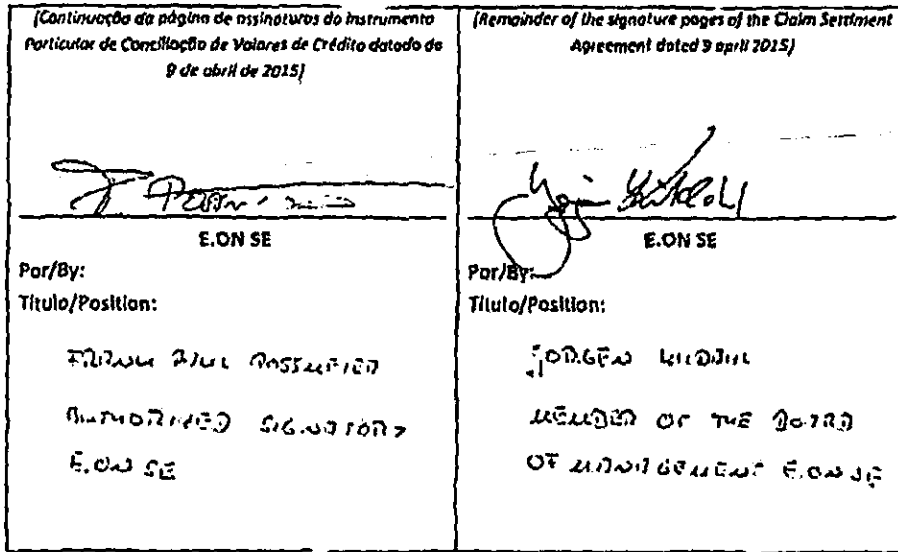 [Continuação da página de assinaturas do Instrumento
Particular de Conciliação de Valores de Crédito datado de
9 de abril de 2015]
E.ON SE
Por/By:
Título/Position:
AUTHORISED SIGNATORY
E.ON SE
[Remainder of the signature pages of the Claim Settlment
Agreement dated 9 april 2015]
E.ON SE
Por/By:
Título/Position:
MEMBER OF THE BOARD
OF MANAGEMENT E.ON SE